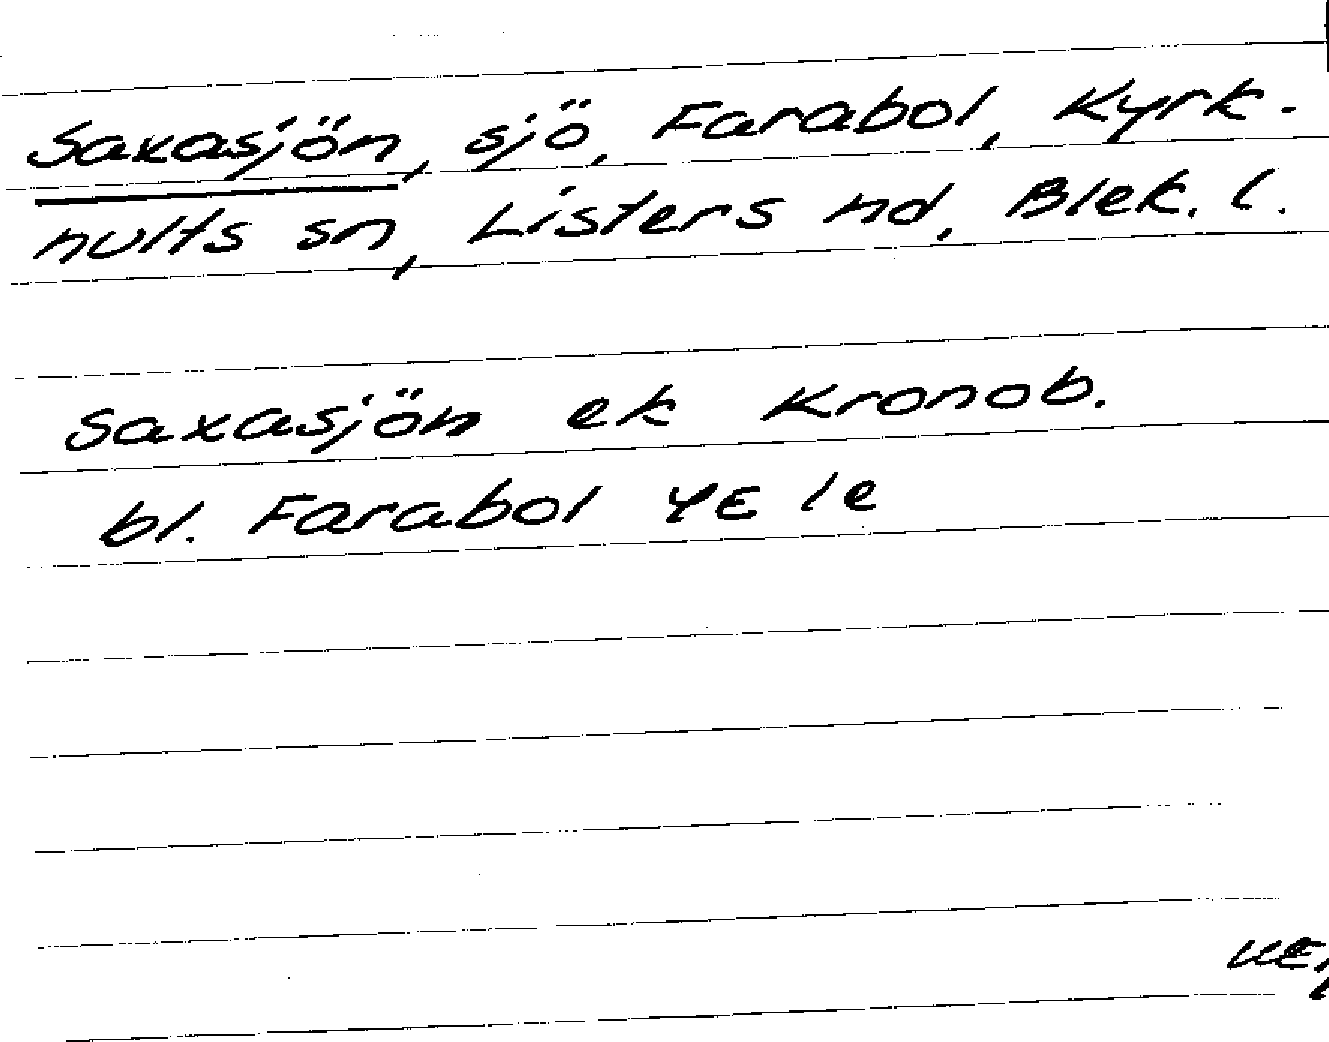 Saxasjön, sjö, Farabol, Kyrk-
hults sn, Listers hd, Blek. l.
Saxasjön ek Kronob.
bl. Farabol 4E 1e